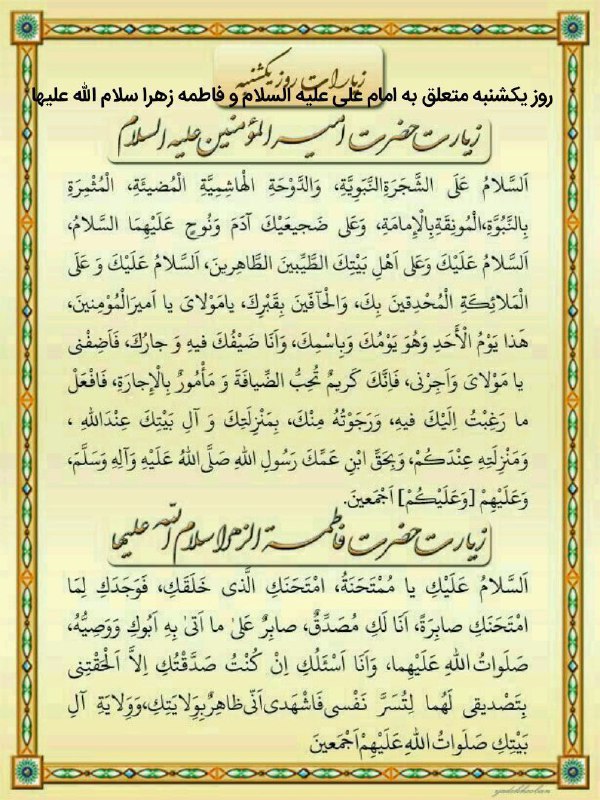 زیارات روز یکشنبه
روز یکشنبه متعلق به امام علی علیه السلام و فاطمه زهرا سلام الله علیها
زیارت حضرت امیرالمؤمنین علیه السلام
اَلسَّلامُ عَلَی الشَّجَرَةِالنَّبَوِيَّةِ، وَالدَّوْحَةِ الْهاشِمِيَّةِ الْمُضيئَةِ، الْمُثْمِرَةِ
بِالنَّبُوَّةِ،الْمُونِقَةِبِالْإِمامَةِ، وَعَلی ضَجيعَيْكَ آدَمَ وَنُوحٍ عَلَيْهِمَا السَّلامُ،
اَلسَّلامُ عَلَيْكَ وَعَلی اَهْلِ بَيْتِكَ الطَّيِّبينَ الطَّاهِرينَ، اَلسَّلامُ عَلَيْكَ وَ عَلَی
الْمَلائِكَةِ الْمُحْدِقينَ بِكَ، وَالْحآفّينَ بِقَبْرِكَ، يامَوْلایَ يا اَميرَالْمُوْمِنينَ،
هَذا يَوْمُ الْأَحَدِ وَهُوَ يَوْمُكَ وَبِاسْمِكَ، وَاَنَا ضَيْفُكَ فيهِ وَ جارُكَ، فَاَضِفْنی
يا مَوْلایَ وَاَجِرْنی، فَاِنَّكَ كَريمٌ تُحِبُّ الضِّيافَةَ وَ مَأْمُورٌ بِالْإِجارَةِ، فَافْعَلْ
ما رَغِبْتُ اِلَيْكَ فيهِ، وَرَجَوْتُهُ مِنْكَ، بِمَنْزِلَتِكَ وَ آلِ بَيْتِكَ عِنْدَاللهِ ،
وَمَنْزِلَتِهِ عِنْدَكُمْ، وَبِحَقِّ ابْنِ عَمِّكَ رَسُولِ اللهِ صَلَّی اللهُ عَلَيْهِ وَآلِهِ وَسَلَّمَ،
وَعَلَيْهِمْ [وَعَلَيْكُمْ] اَجْمَعينَ.
زیارت حضرت فاطمة الزهرا سلام الله علیها
اَلسَّلامُ عَلَيْكِ يا مُمْتَحَنَةُ، امْتَحَنَكِ الَّذی خَلَقَكِ، فَوَجَدَكِ لِمَا
امْتَحَنَكِ صابِرَةً، اَنَا لَكِ مُصَدِّقٌ، صابِرٌ عَلیٰ ما اَتیٰ بِهِ اَبُوكِ وَوَصِيُّهُ،
صَلَواتُ اللهِ عَلَيْهِما، وَاَنَا اَسْئَلُكِ اِنْ كُنْتُ صَدَّقْتُكِ اِلاَّ اَلْحَقْتِنی
بِتَصْديقی لَهُما لِتُسَرَّ نَفْسی فَاشْهَدی اَنّی ظاهِرٌ بِوَلايَتِكِ،وَوَلايَةِ آلِ
بَيْتِكِ صَلَواتُ اللهِ عَلَيْهِمْ اَجْمَعينَ